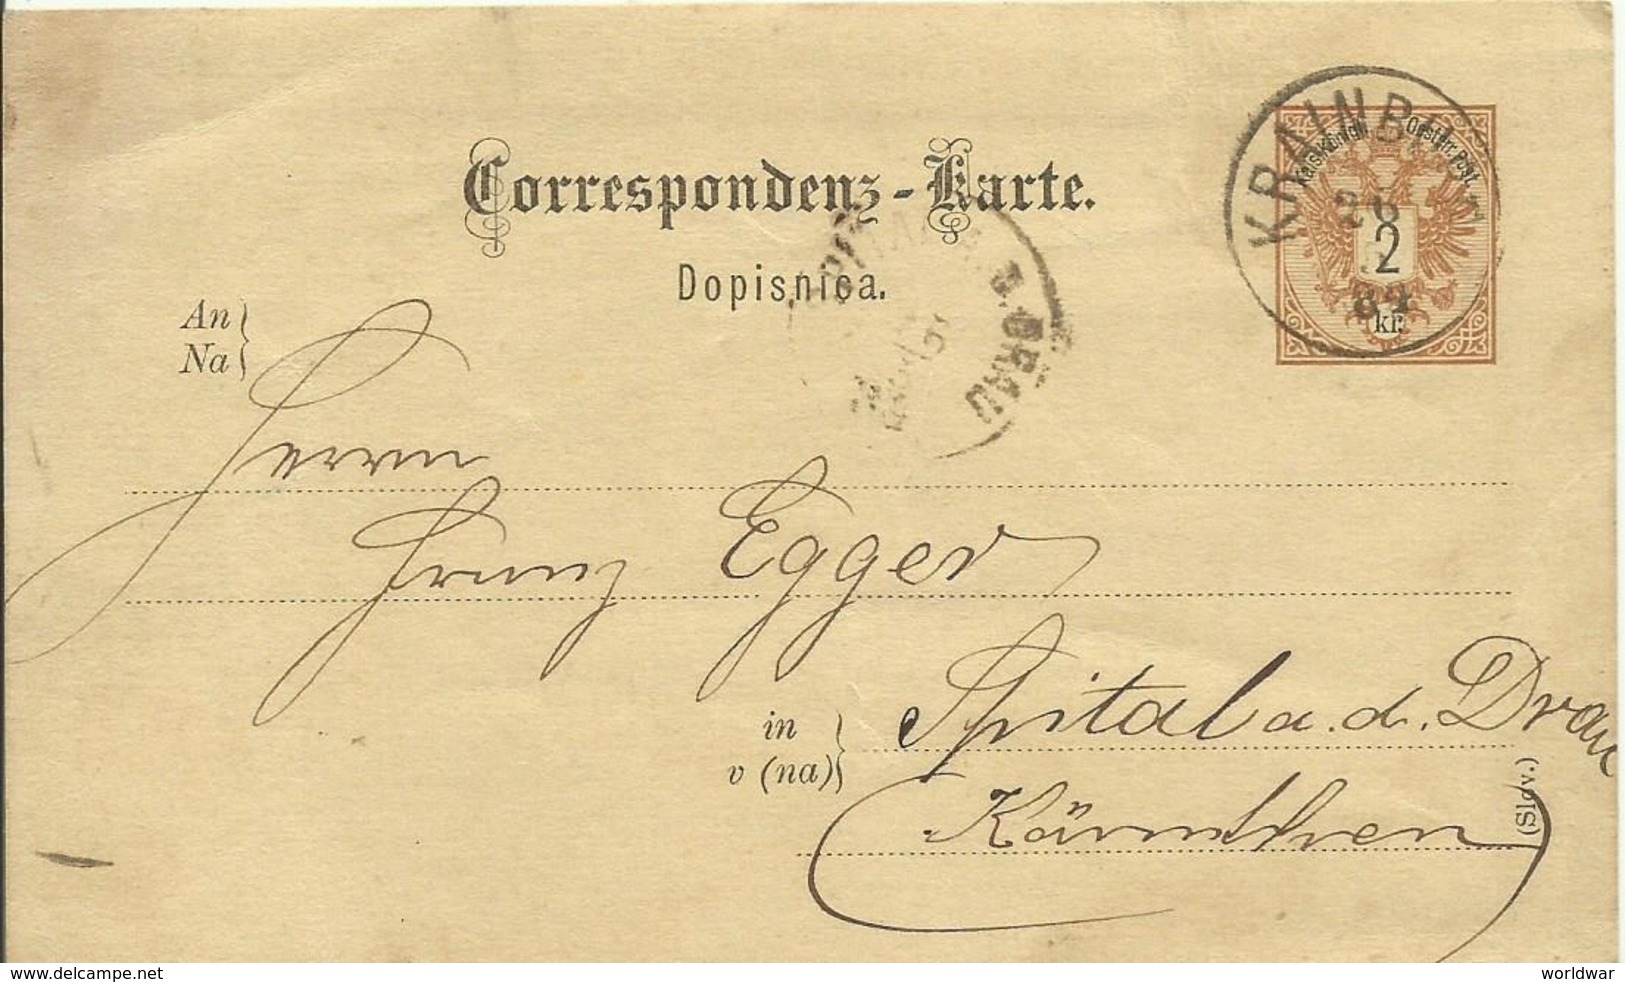 Correspondenz-Karte.
Dopisnica.
KRAINBU
Kais.Königl. Oesterr.Post.
2
kr.
84
SPITTAL A. D. DRAU
An
Na
Herrn
Franz Egger
in
v (na)
Spital a. d. Drau
Kärnthen
(Slov.)
www.delcampe.net
worldwar